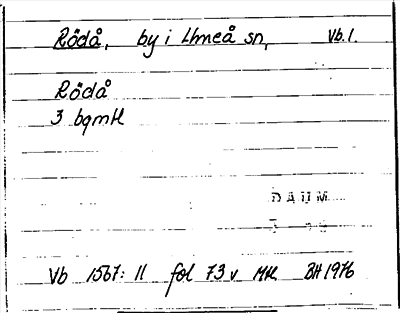 Rödå, by i Umeå sn, Vb.l.
Rödå
3 bqmtl
DAUM
Vb 1567:11 fol 73v MtL BH 1976